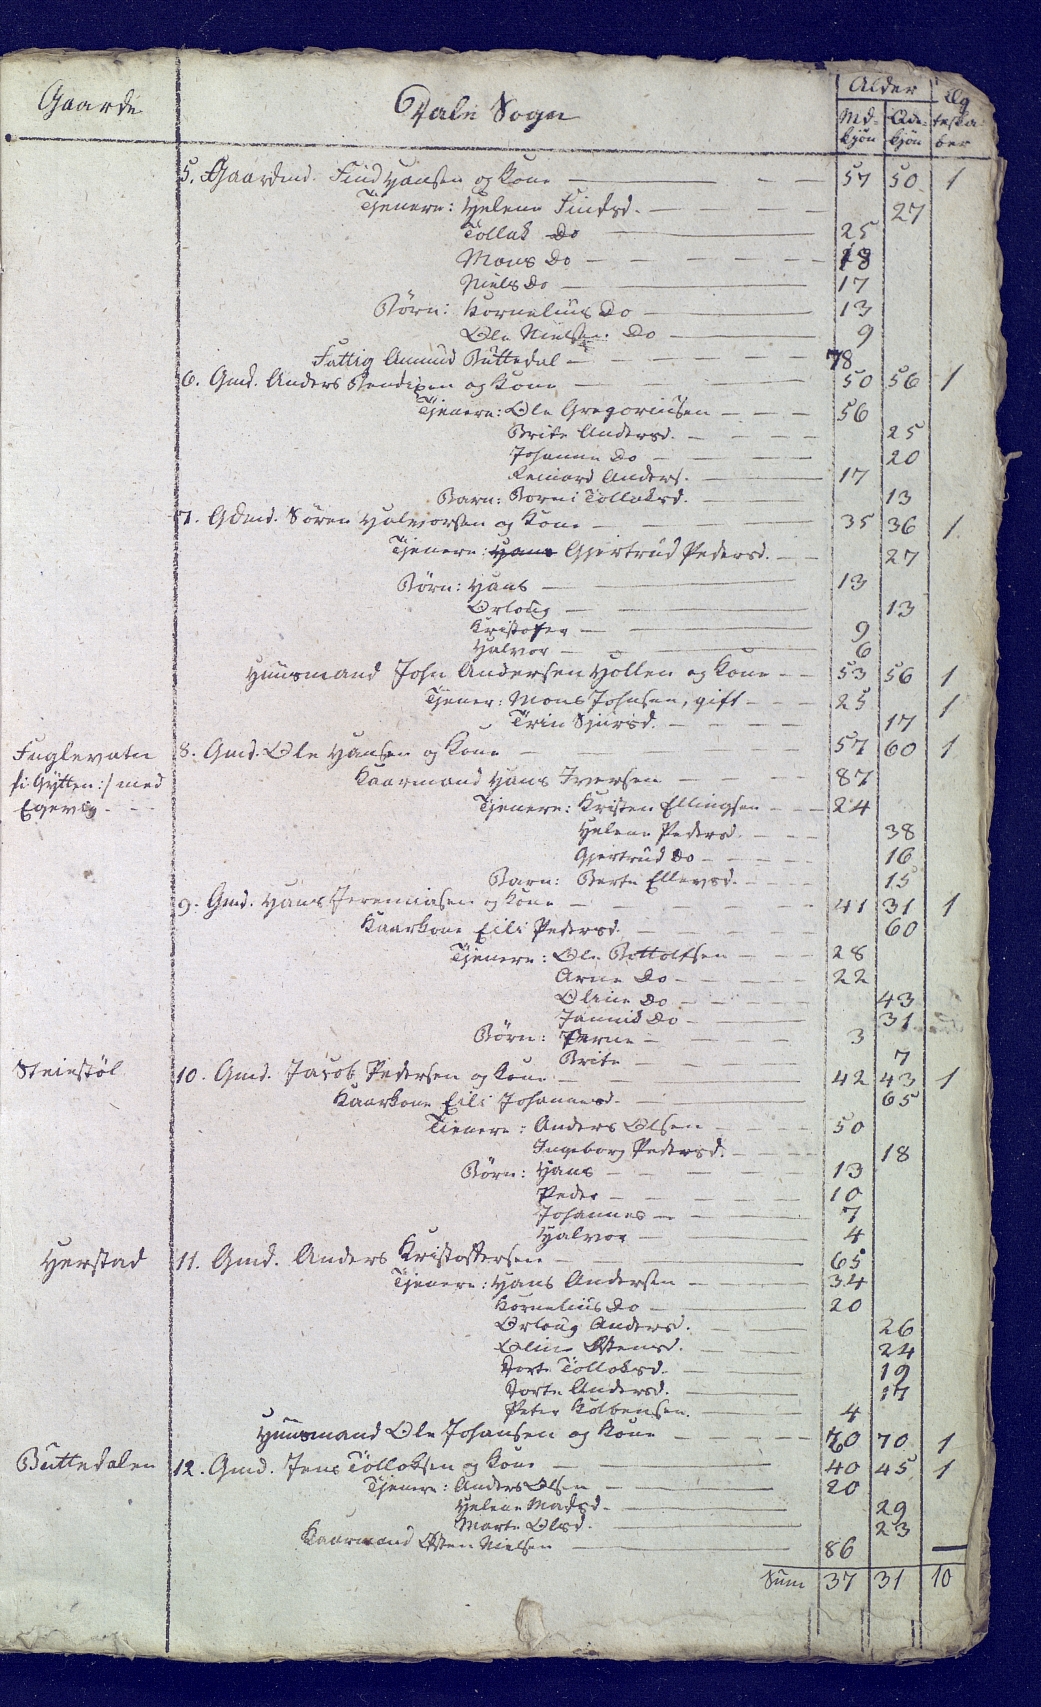 Gaarde Dale Sogn Alder Ægteskaber
Md-kjøn Qde-kjøn
5. Gaardmd. Find Hansen og Kone 57 50 1
Tjenere: Helene Findsd. 27
Tollak Do 25
Mons Do 18
Niels Do 17
Børn: Kornelius Do 13
Ole Nielsen Do 9
Fattig Amund Büttedal 78
6. Gmd. Anders Bendixen og Kone 50 56 1
Tjenere: Ole Gregoriusen 56
Brite Andersd. 25
Johanne Do 20
Reinard Anders. 17
Barn: Borni Tollaksd. 13
7. Gdmd. Søren Halvorsen og Kone 35 36 1
Tjenere: Hans Gjertrud Pedersd. 27
Børn: Hans 13
Orloug 13
Kristofer 9
Halvor 6
Huusmand John Andersen Hollen og Kone 53 56 1
Tjener: Mons Johnsen, gift 25 1
Trin Sjursd. 17
Fuglevatn 8. Gmd. Ole Hansen og Kone 57 60 1
/: Gytten :/ med Kaarmand Hans Iversen 87
Egevig Tjenere: Kristen Ellingsen 24
Helene Pedersd. 38
Gjertrud Do 16
Barn: Berte Ellevsd. 15
9. Gmd. Hans Jeremiasen og Kone 41 31 1
Kaarkone Eili Pedersd. 60
Tjenere: Ole Bottolfsen 28
Arne Do 22
Oline Do 43
Jannid Do 31
Børn: Perne 3
Brite 7
Steinstøl 10. Gmd. Jacob Pedersen og Kone 42 43 1
Kaarkone Eili Johannesd. 65
Tienere: Anders Olsen 50
Ingeborg Pedersd. 18
Børn: Hans 13
Peder 10
Johannes 7
Halvor 4
Herstad 11. Gmd. Anders Kristoffersen 65
Tjenere: Hans Andersen 34
Kornelius Do 20
Orloug Andersd. 26
Oline Østensd. 24
Dorte Tolloksd. 19
Dorte Andersd. 17
Peter Kolbensen. 4
Huusmand Ole Johansen og Kone 70 1
Büttedalen 12. Gmd. Jens Tolloksen og Kone 40 45 1
Tjenere: Anders Olsen 20
Helene Madsd. 29
Marte Olsd. 23
Kaarmand Østen Nielsen 86
Sum 37 31 10